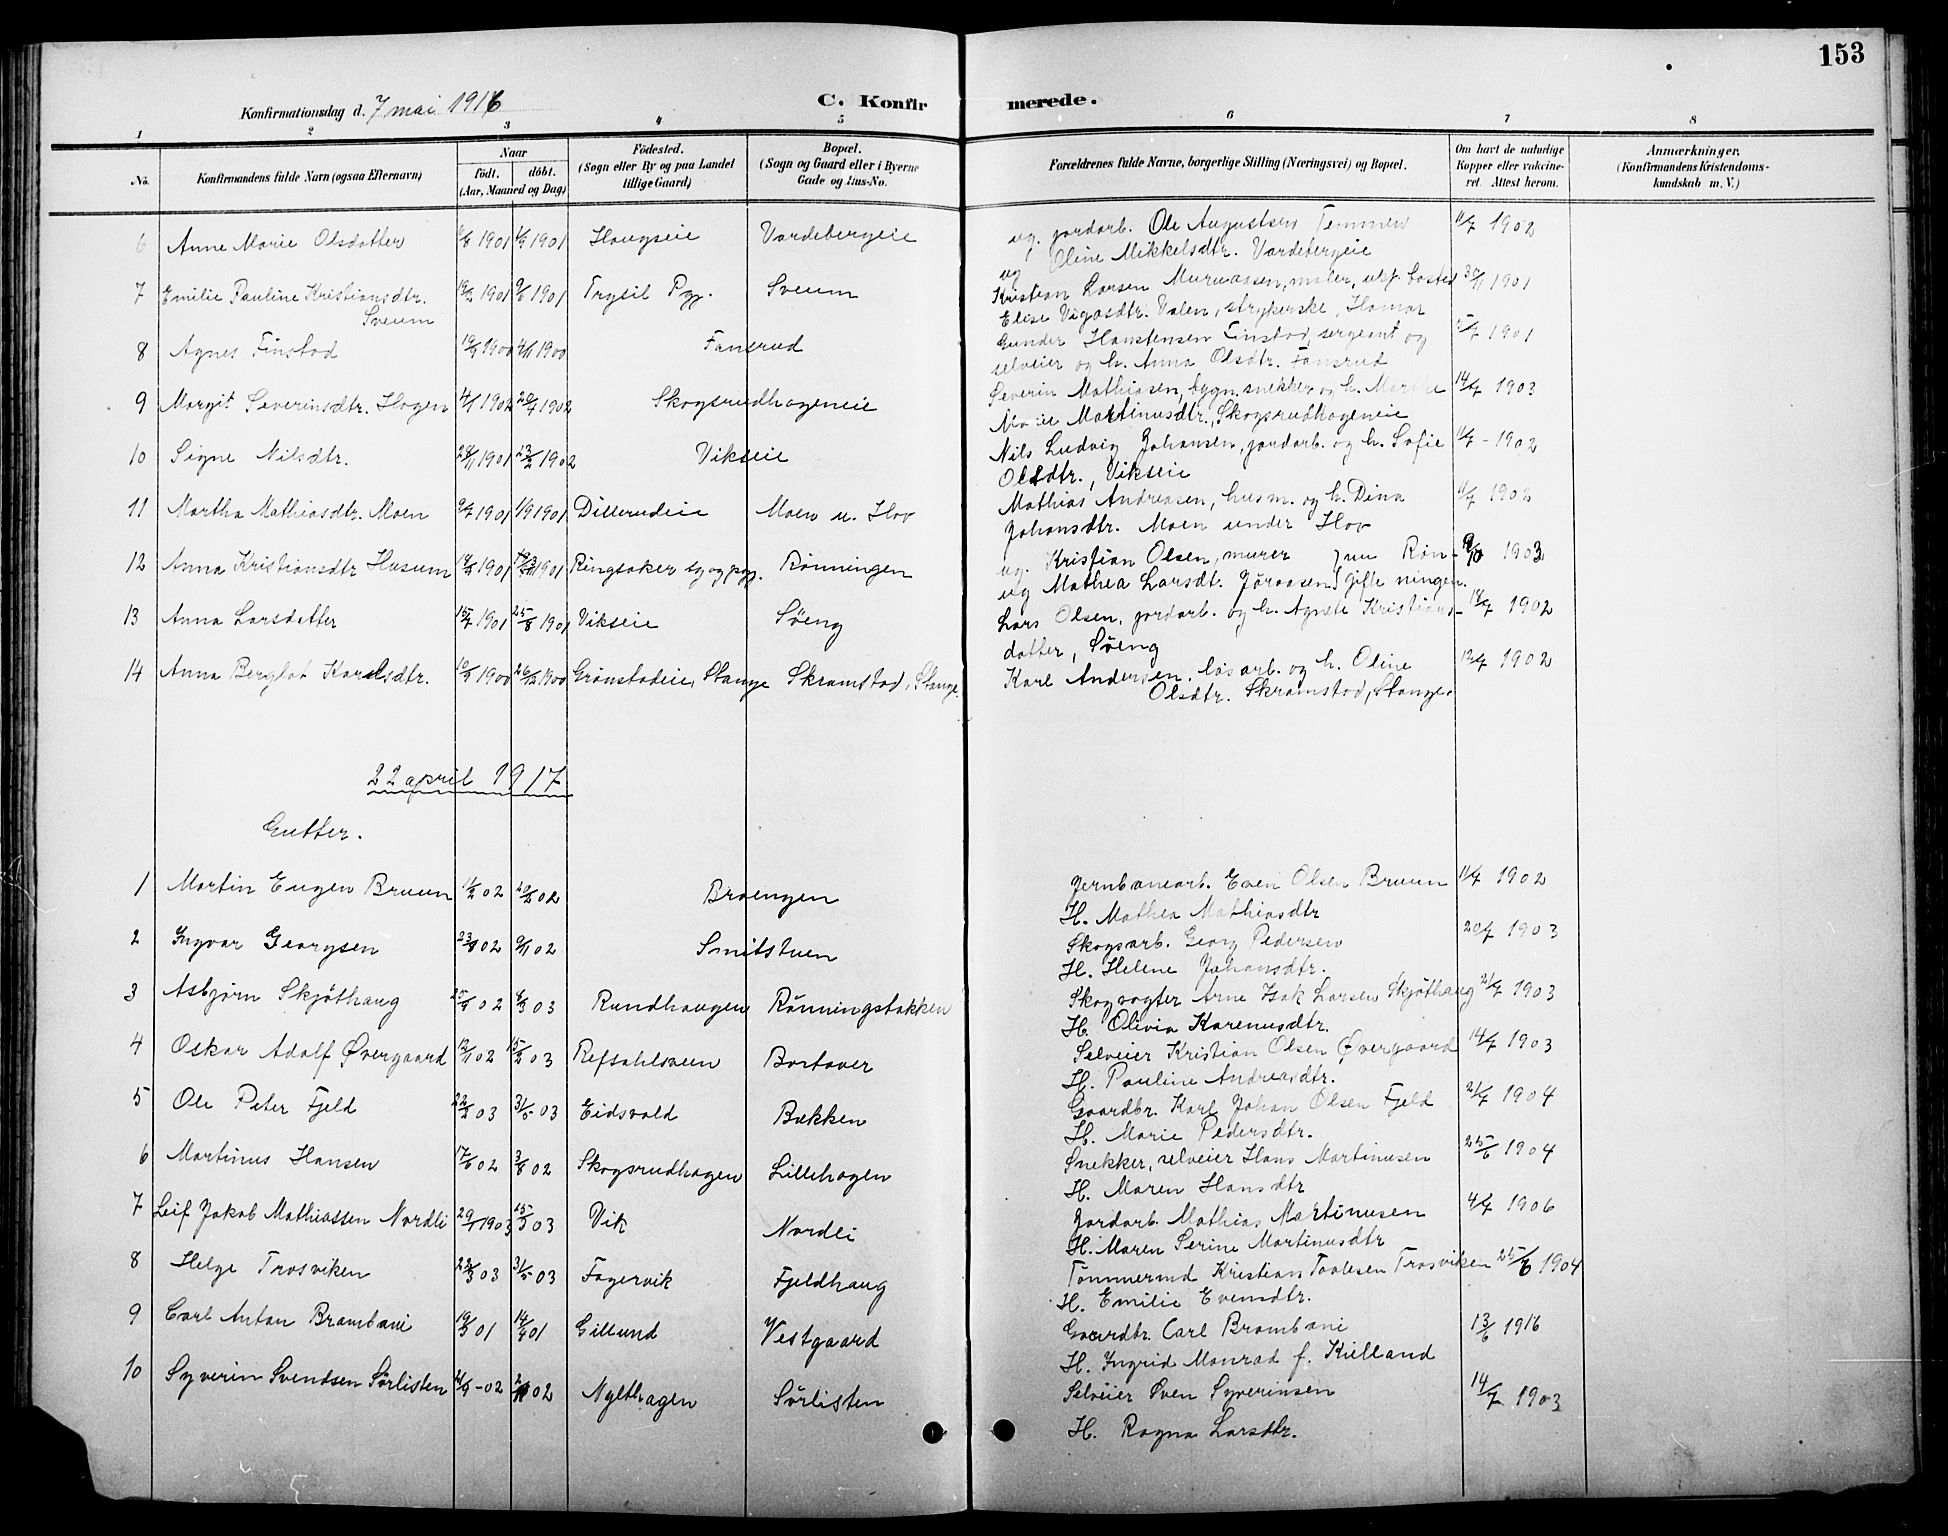 153
Konfirmationsdag d. 7 mai 1916
C. Konfirmerede.
1 2 3 4 5 6 7 8
No.
Konfirmandens fulde Navn (ogsaa Efternavn)
Naar
født. døbt.
(Aar, Maaned og Dag)
Fødested.
(Sogn eller By og paa Landet
tillige Gaard)
Bopæl.
(Sogn og Gaard eller i Byerne
Gade og Hus-No.
Forældrenes fulde Navne, borgerlige Stilling (Næringsvei) og Bopæl.
Om havt de naturlige
Kopper eller vakcine-
ret. Attest herom.
Anmærkninger,
(Konfirmandens Kristendoms-
kundskab m. V.)
6 Anne Marie Olsdatter 1901 1901 Haugseie Vardebergeie ug. jordarb. Ole Augustsen Temmen 11/7 1902
ug Oline Mikkelsdtr. Vardebergeie
7 Emilie Pauline Kristiansdtr. 1901 1901 Trysil Pgj. Sveum Kristian Larsen Muruaasen, maler, ubf. bosted 30/11 1901
Sveum Elise Vigasdtr. Valen, strykerske, Hamar
8 Agnes Finstad 1900 1900 Fansrud Gunder Hanstensen Finstad, sergeant og 1901
selveier og h. Anna Olsdtr. Fansrud
9 Margit Severinsdtr. Hagen 4/1 1902 20/4 1902 Skogsrudhageneie Severin Mathiasen, bygn.snekker og h. Marthe 14/7 1903
Marie Martinusdtr., Skogsrudhageneie
10 Signe Nilsdtr. 28/11 1901 23/2 1902 Vikseie Nils Ludvig Johansen, jordarb. og h. Sofie 11/7 - 1902
Olsdtr., Vikseie
11 Martha Mathiasdtr. Moen 1901 1/9 1901 Dillerudeie Moen u. Hov Mathias Andreasen, husm. og h. Dina 11/7 1902
Johansdtr. Moen under Hov
12 Anna Kristiansdtr Husum 1901 1901 Ringsaker sg og pgj. Rønningen ug. Kristian Olsen, murer } nu Røn- 1903
ug Mathea Larsdt. Jøraasen } gifte ningen.
13 Anna Larsdatter 15/7 1901 25/8 1901 Vikseie Søeng Lars Olsen, jordarb. og h. Agnete Kristians- 1902
datter, Søeng
14 Anna Berglot Karlsdtr. 1900 26/12 1900 Grønstadeie, Stange Skramstad, Stange. Karl Andersen, løsarb. og h. Oline 1902
Olsdtr. Skramstad, Stange.
22 april 1917
Gutter.
1 Martin Eugen Bruun 02 02 Braengen Jernbanearb. Even Olsen Bruun 11/7 1902
H. Mathea Mathiasdtr
2 Ingvar Georgsen 02 02 Smitstuen Skogsarb. Georg Pedersen 20/7 1903
H. Helene Johansdtr.
3 Asbjørn Skjøthaug 02 03 Rundhaugen Rønningsbakken Skogvogter Arne Isak Larsen Skjøthaug 21/7 1903
H. Olivia Karenusdtr.
4 Oskar Adolf Øvergaard 02 15/2 03 Refsahlsveen Bortover Selveier Kristian Olsen Øvergaard 14/7 1903
H. Pauline Andreasdtr.
5 Ole Peter Fjeld 22/2 03 31/5 03 Eidsvold Bækken Gaardbr. Karl Johan Olsen Fjeld 21/7 1904
H. Marie Pedersdtr.
6 Martinus Hansen 17/6 02 3/8 02 Skogsrudhagen Lillehagen Snekker, selveier Hans Martinusen 25/6 1904
H. Maren Hansdtr
7 Leif Jakob Mathiassen Nordli 29/1 1903 03 Vik Nordli Jordarb. Mathias Martinusen 4/7 1906
H. Maren Serine Martinusdtr
8 Helge Trosviken 22/3 03 31/5 03 Fagervik Fjeldhaug Tømmermd Kristian Taalesen Trosviken 25/6 1904
H. Emilie Evensdtr.
9 Carl Anton Brambani 01 01 Gillund Vestgaard Gaardbr. Carl Brambani 13/6 1916
H. Ingrid Monrad f. Kielland
10 Syverin Svendsen Sørlisten 02 02 Nylthagen Sørlisten Selveier Sven Syverinsen 14/7 1903
H. Ragna Larsdtr.